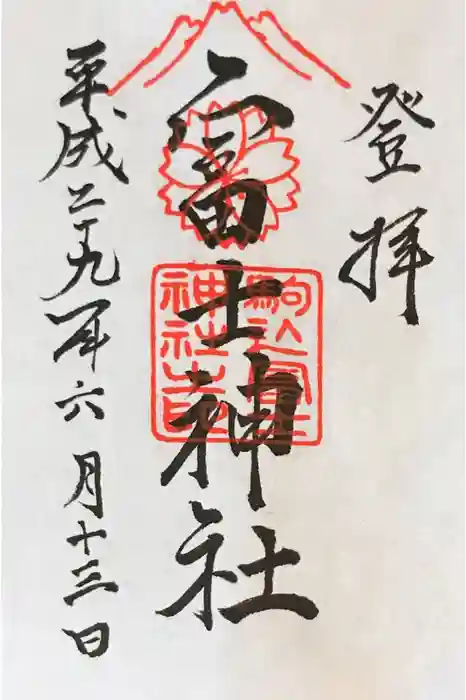 登拝
冨士神社
駒込冨士
神社
平成二十九年六月十三日